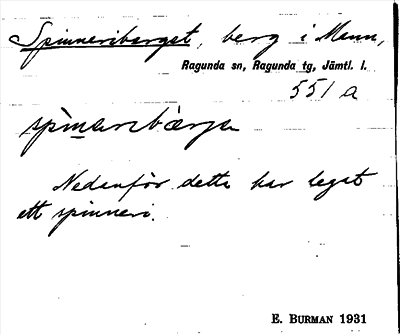 Spinneriberget, berg i Menn,
Ragunda sn, Ragunda tg, Jämtl. l.
551 a
Nedanför detta har legat
ett spinneri.
E. BURMAN 1931